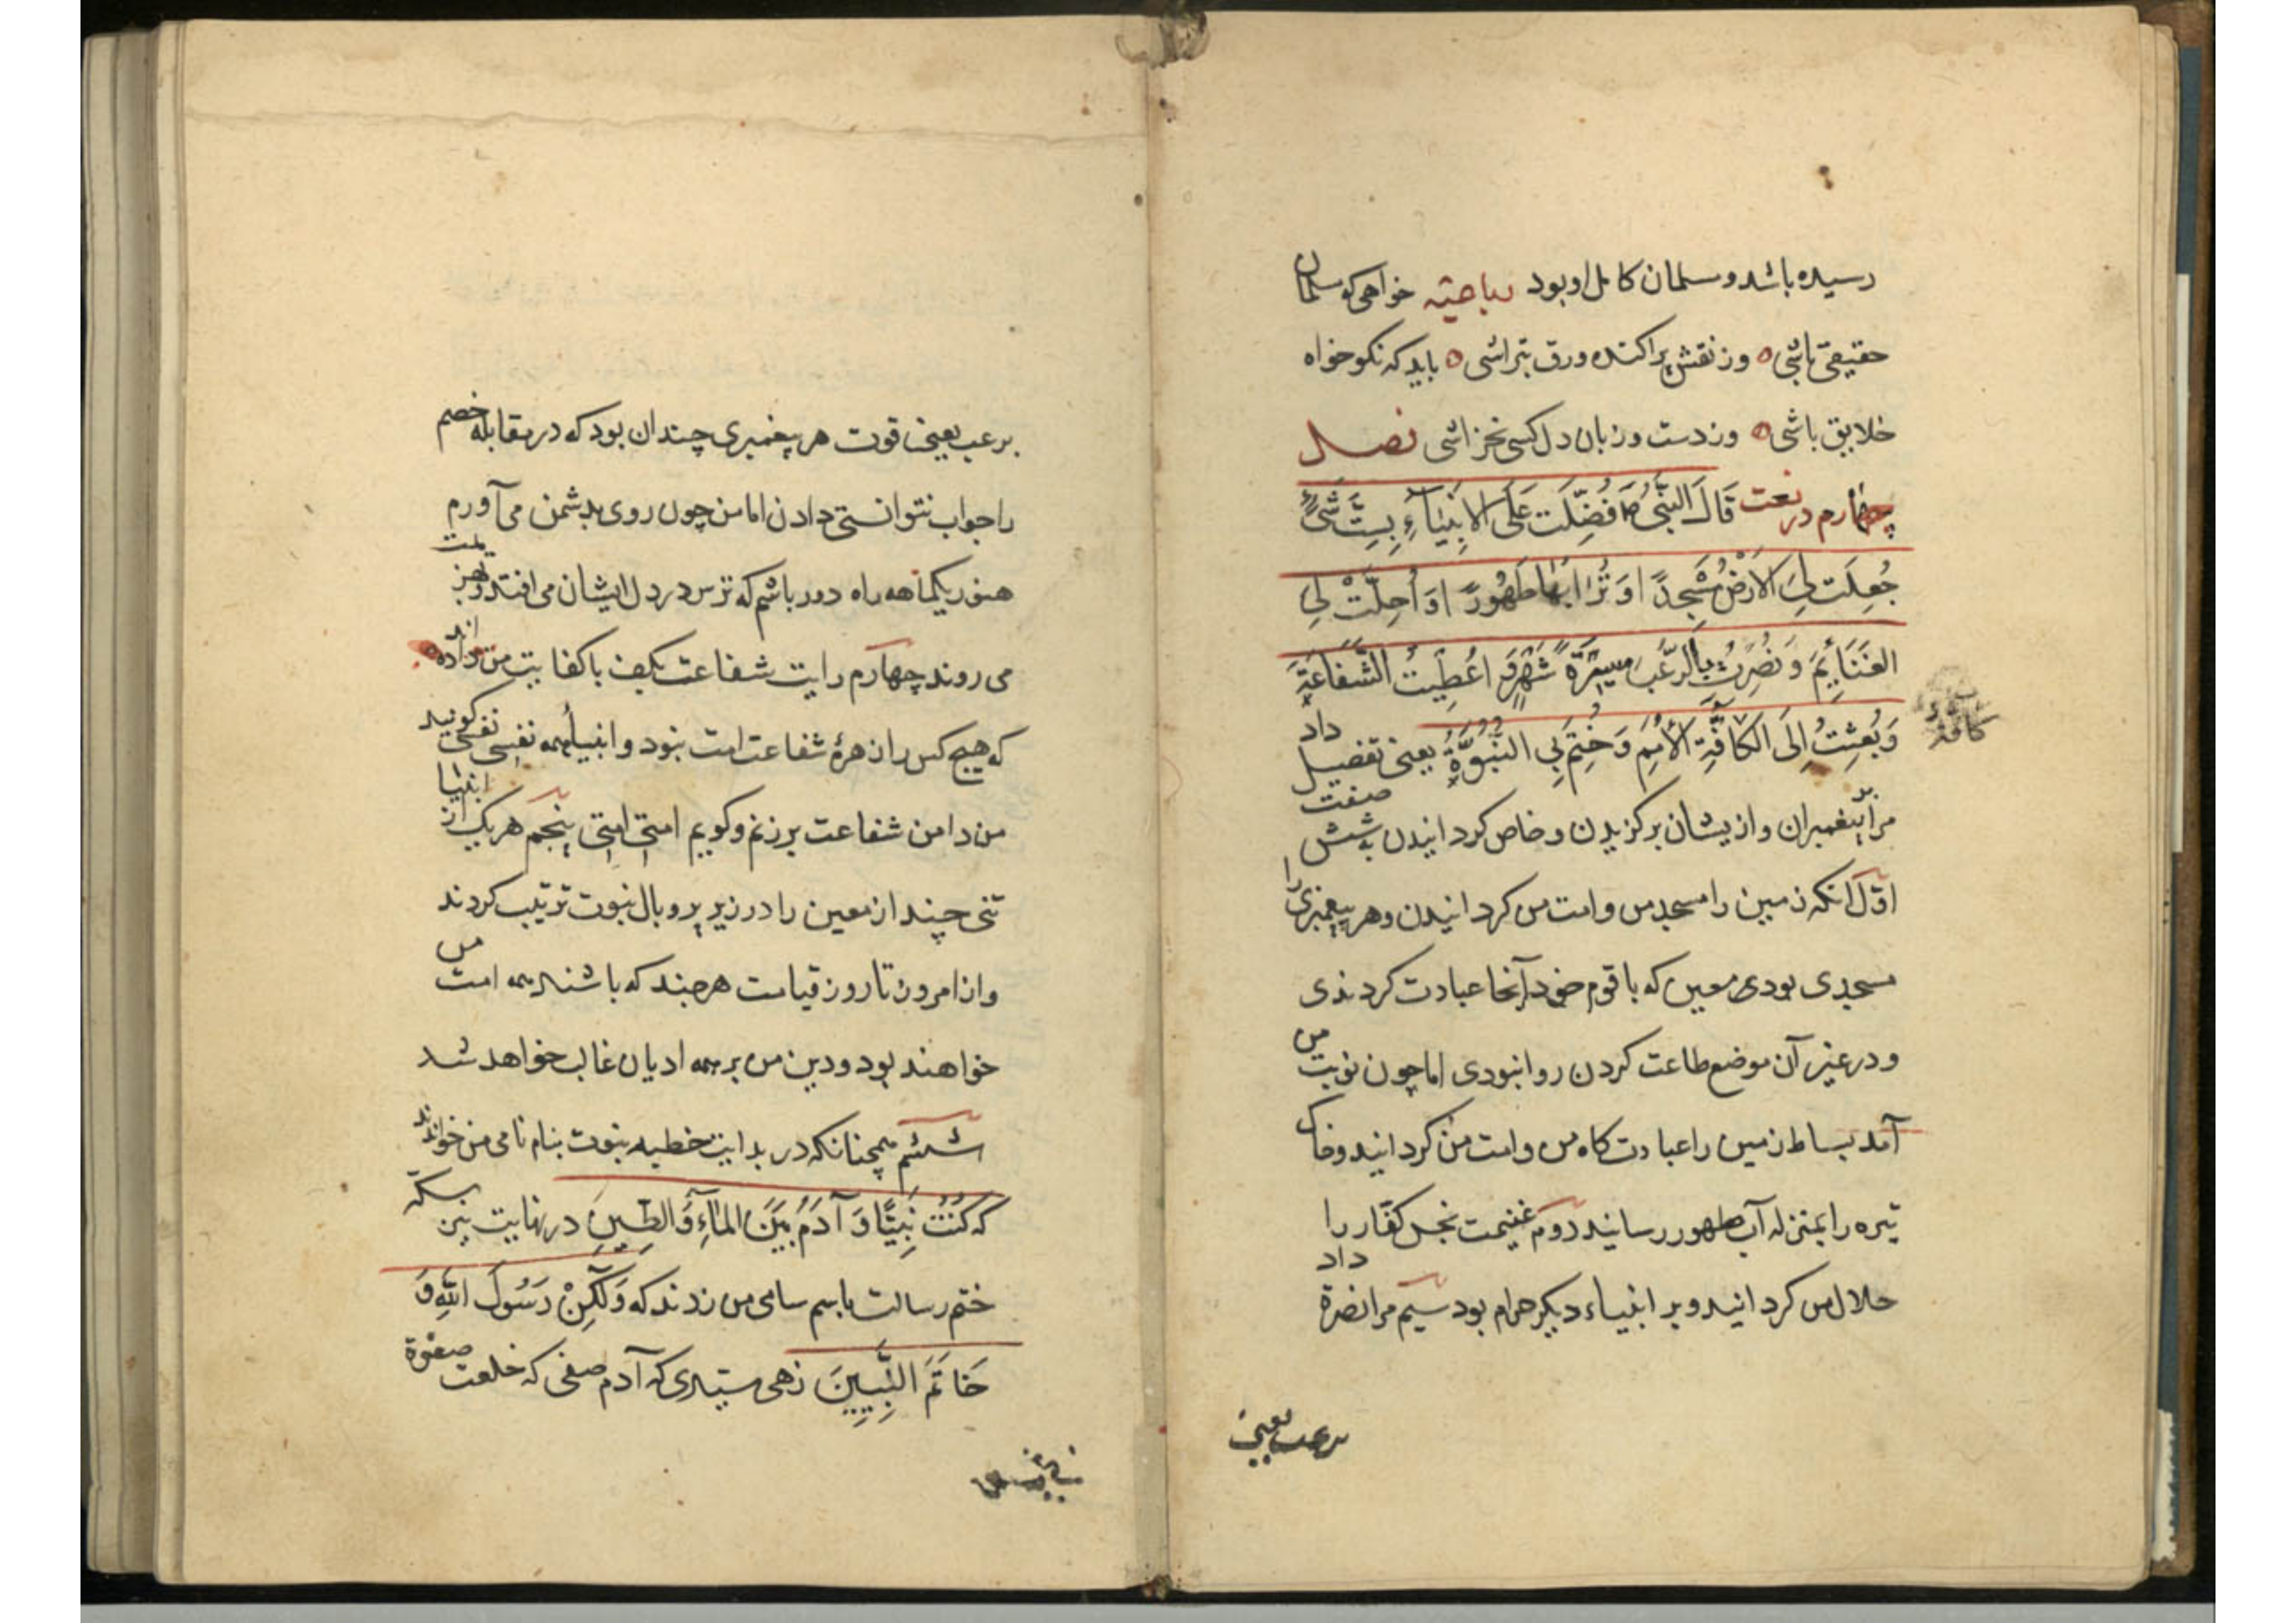 رسیده باشد و مسلمان کامل او بود رباعیّه خواهی که مسلمان
حقیقی باشی ه وز نقش پراکنده ورق بتراشی ه باید که نکو خواه
خلایق باشی ه وز دست و زبان دل کسی نخراشی فصل
چهارم در نعت قَالَ النَّبِیُّ فُضِّلَت عَلَی الاَنبِیَآءِ بِسِتِّ شَیءٍ
جُعِلَت لِیَ الاَرْضُ مَسْجِدًا وَ تُرَابُهَا طَهُورًا وَ اُحِلَّتْ لِی
الغَنَایِمَ وَ نُصِرْتُ بِالرُّعْبِ مسیرَةَ شَهْرٍ وَ اُعْطِیتُ الشَّفَاعَةَ
وَ بُعِثتُ اِلَی الکَافَّةِ الاُمَمِ وَ خُتِمَ بِی النُّبُوَّةُ یعنی تفضیل داد
کافة
مرا بر پیغمبران و از یشان برکزیدن و خاص کردانیدن به شش صفت
اوّل آنکه زمین را مسجد من و امت من کردانیدن و هر پیغمبری را
مسجدی بودی معین که با قوم خود آنجا عبادت کردندی
و در غیر آن موضع طاعت کردن روا نبودی اما چون نوبت من
آمد بساط زمین را عبادت کاه من و امت من کردانید و خاک
تیره را بمنزله آب طهور رسانید دوم غنیمت نجس کفّار را
حلال من کردانید و بر انبیاء دیکر حرام بود سیم مرا نصرة داد
برعب یعنی
برعب یعنی قوت هر پیغمبری چندان بود که در مقابله خصم
را جواب نتوانستی دادن اما من چون روی بدشمن می آورم
هنوز یکماهه راه دور باشم که ترس در دل ایشان می افتد و بهزیمت
می روند چهارم رایت شفاعت بکف با کفایت من داده اند
که هیچ کس را زهرهٔ شفاعت امت نبود و انبیا همه نفسی نفسی کویند
من دامن شفاعت برزنم و کویم امتی امتی پنجم هر یک از انبیا
تنی چند از معین را در زیر پر و بال نبوت ترتیب کردند
و از امروز تا روز قیامت هر چند که باشند همه امت من
خواهند بود و دین من بر همه ادیان غالب خواهد شد
ششم همچنانکه در بدایت خطبه نبوت بنام نامی من خواندند
که کُنْتُ نَبِیًّا وَ آدَمُ بَیْنَ المَآءِ وَ الطِّینِ در نهایت نیز سکّه
ختم رسالت باسم سامی من زدند که وَلَکِنْ رَسُولَ اللهِ وَ
خَاتَمَ النَّبِیِّینَ زهی سیّدی که آدم صفی که خلعت صفوة